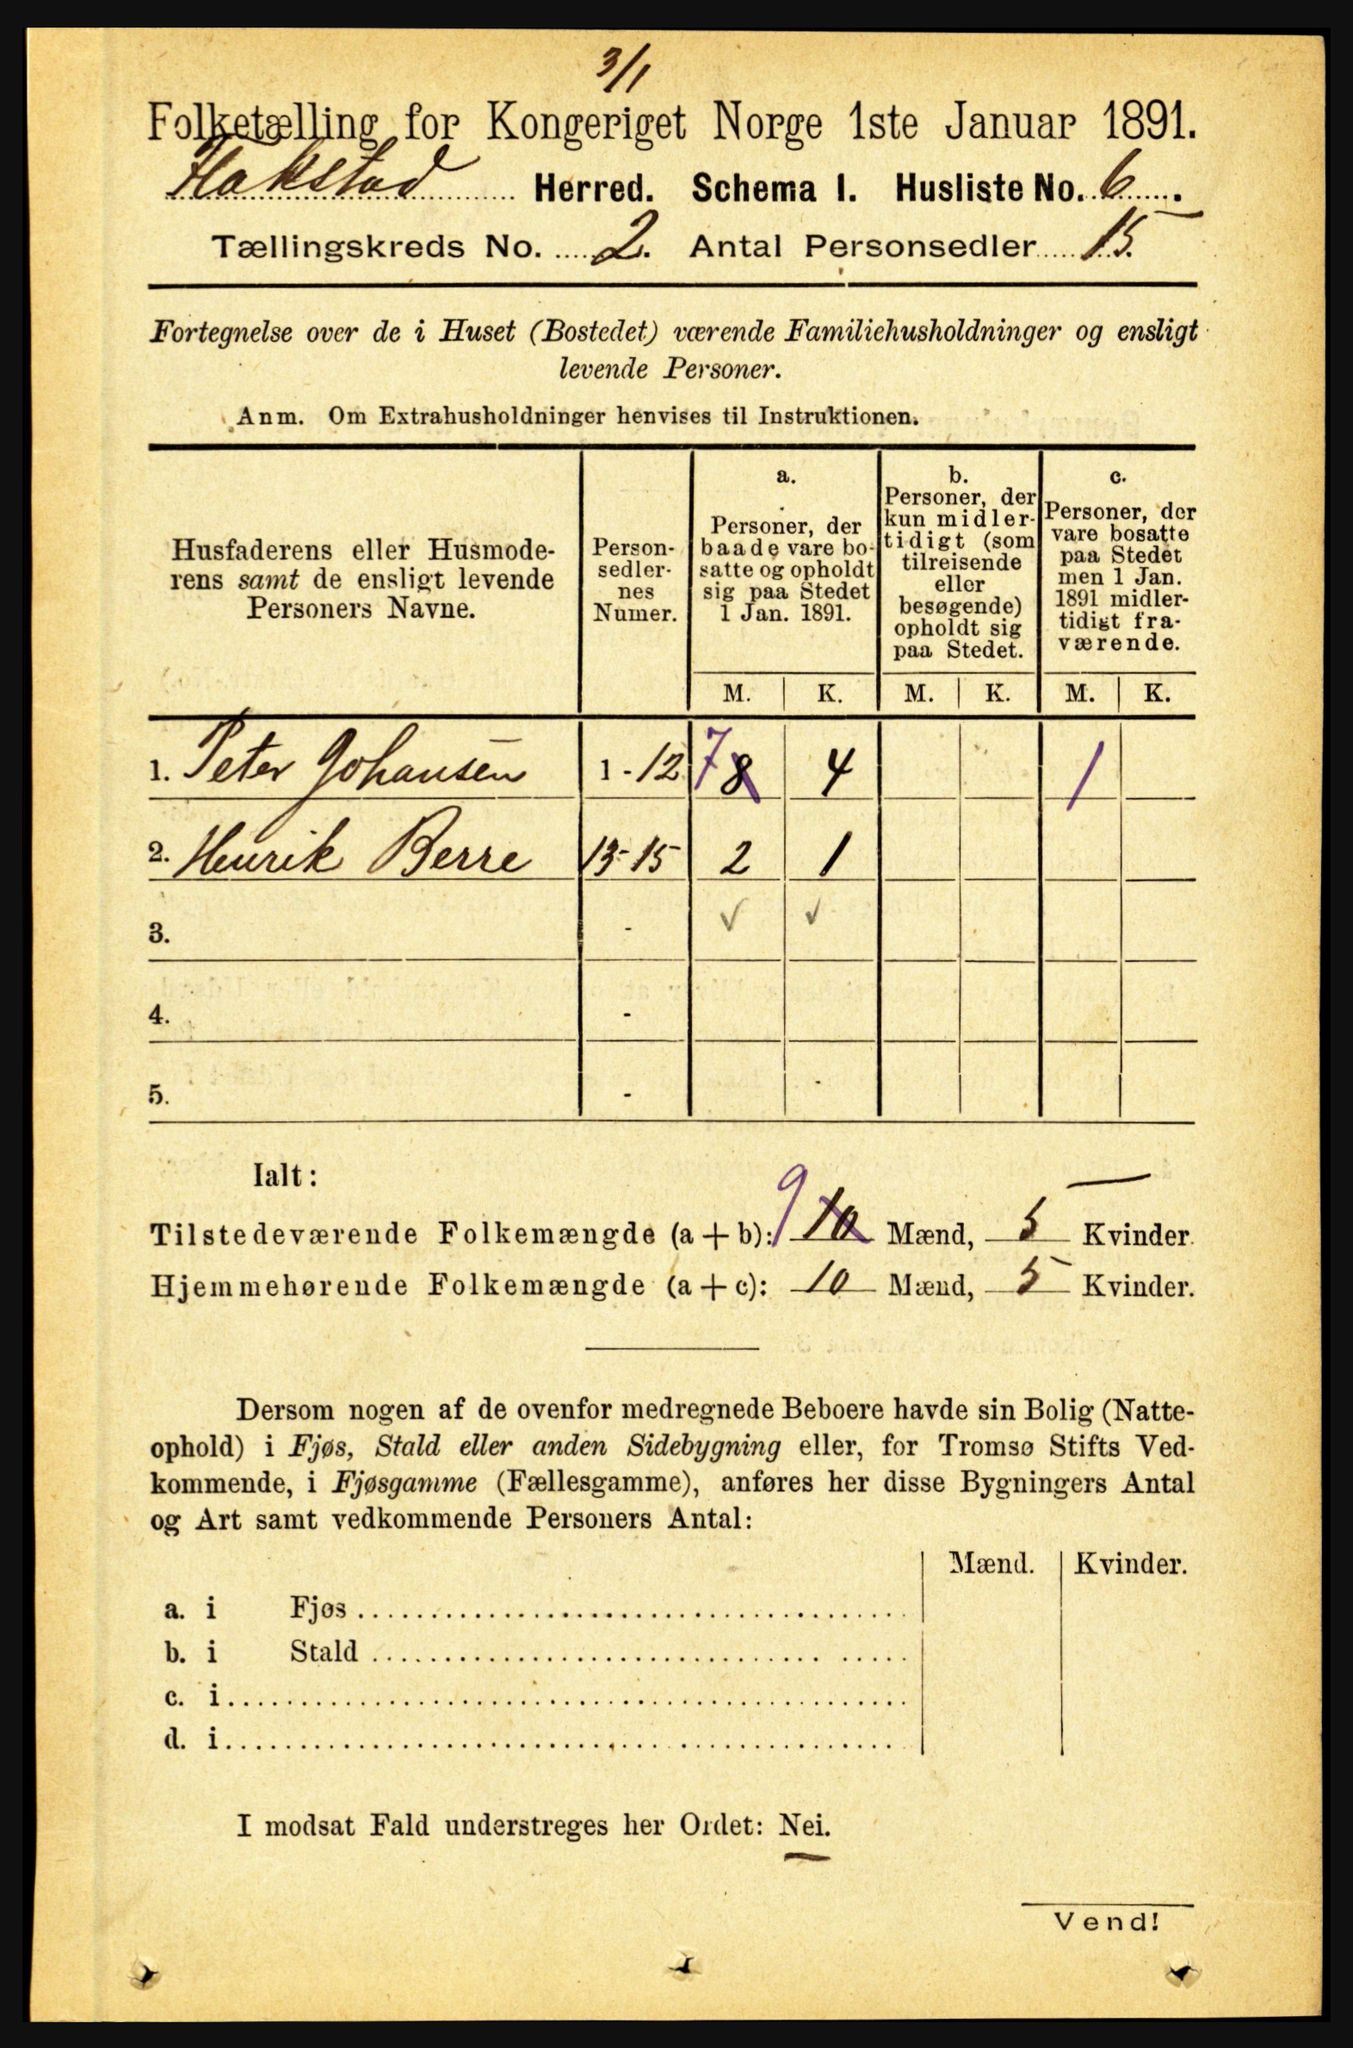 3/1
Folketælling for Kongeriget Norge 1ste Januar 1891.
Flakstad Herred. Schema I. Husliste No. 6.
Tællingskreds No. 2. Antal Personsedler 15.
Fortegnelse over de i Huset (Bostedet) værende Familiehusholdninger og ensligt
levende Personer.
Anm. Om Extrahusholdninger henvises til Instruktionen.
Husfaderens eller Husmode-
rens samt de ensligt levende
Personers Navne.
Person-
sedler-
nes
Numer.
a.
Personer, der
baade vare bo-
satte og opholdt
sig paa Stedet
1 Jan. 1891.
b.
Personer, der
kun midler-
tidigt (som
tilreisende
eller
besøgende)
opholdt sig
paa Stedet.
c.
Personer, der
vare bosatte
paa Stedet
men 1 Jan.
1891 midler-
tidigt fra-
værende.
M. K. M. K. M. K.
1. Peter Johansen 1-12 7 8 4 1
2. Henrik Berre 13-15 2 1
3. - ✓ ✓
4. -
5. -
Ialt:
Tilstedeværende Folkemængde (a + b): 9 10 Mænd, 5 Kvinder.
Hjemmehørende Folkemængde (a + c): 10 Mænd, 5 Kvinder.
Dersom nogen af de ovenfor medregnede Beboere havde sin Bolig (Natte-
ophold) i Fjøs, Stald eller anden Sidebygning eller, for Tromsø Stifts Ved-
kommende, i Fjøsgamme (Fællesgamme), anføres her disse Bygningers Antal
og Art samt vedkommende Personers Antal:
Mænd. Kvinder.
a. i Fjøs
b. i Stald
c. i
d. i
I modsat Fald understreges her Ordet: Nei.
Vend!